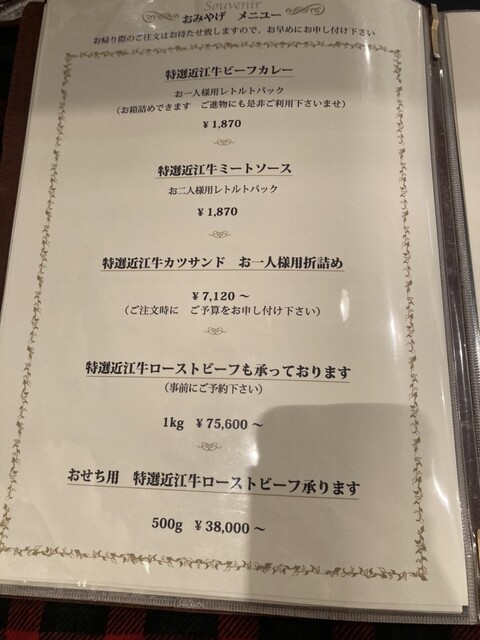 Souvenir
おみやげ　メニュー
お帰り際のご注文はお待たせ致しますので、お早めにお申し付け下さい
特選近江牛ビーフカレー
お一人様用レトルトパック
(お箱詰めできます　ご進物にも是非ご利用下さいませ)
¥1,870
特選近江牛ミートソース
お二人様用レトルトパック
¥1,870
特選近江牛カツサンド　お一人様用折詰め
¥7,120～
(ご注文時に　ご予算をお申し付け下さい)
特選近江牛ローストビーフも承っております
(事前にご予約下さい)
1kg　¥75,600～
おせち用　特選近江牛ローストビーフ承ります
500g　¥38,000～